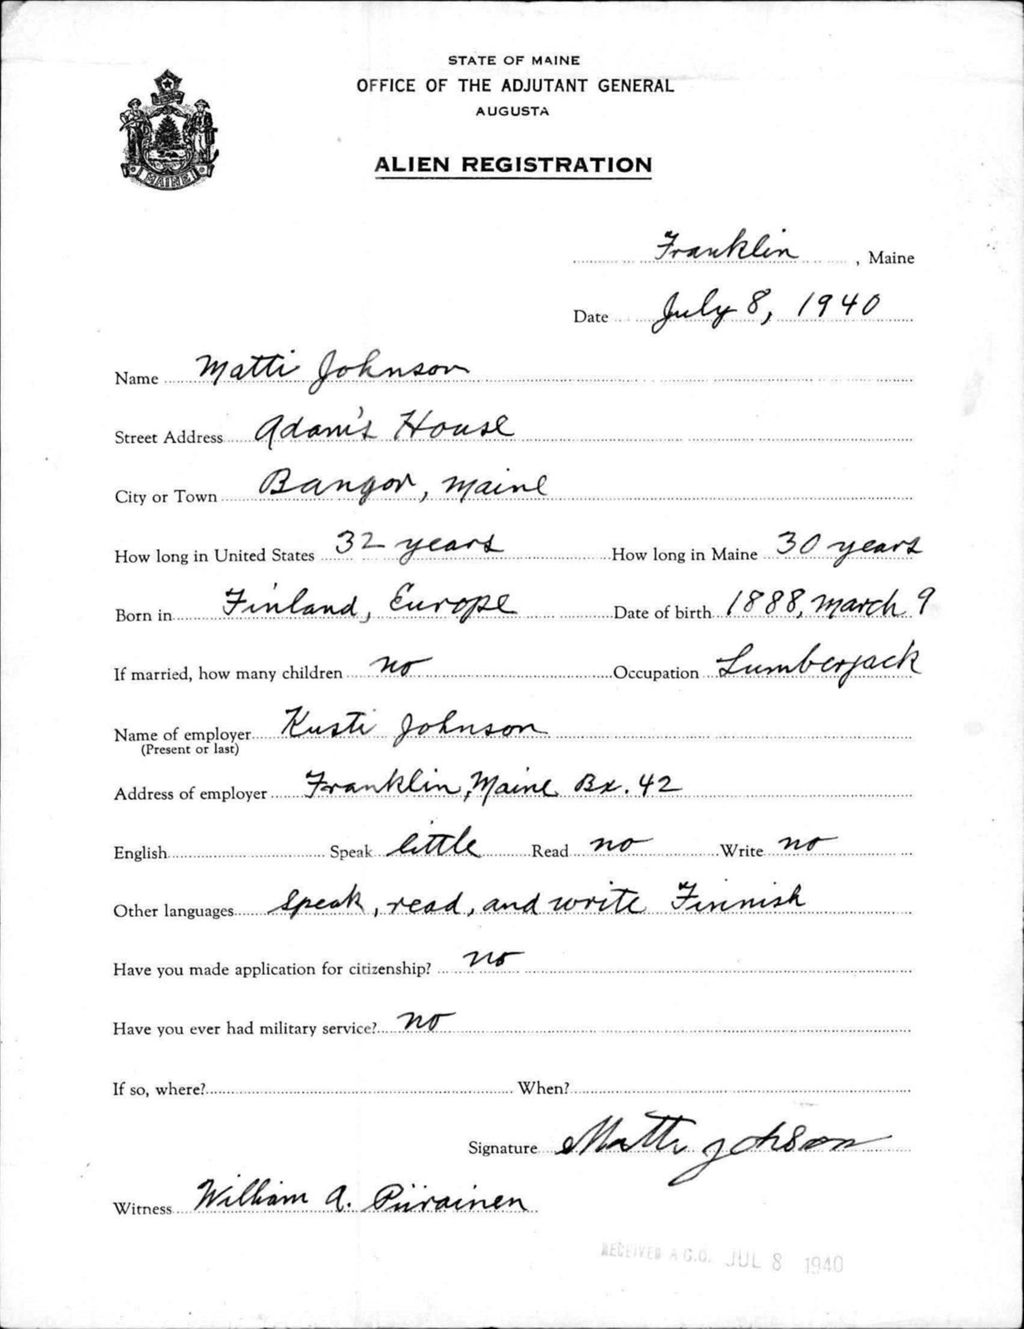 STATE OF MAINE
OFFICE OF THE ADJUTANT GENERAL
AUGUSTA
ALIEN REGISTRATION
MAINE
Franklin, Maine
Date July 8, 1940
Name Matti Johnson
Street Address Adam's House
City or Town Bangor, Maine
How long in United States 32 years How long in Maine 30 years
Born in Finland, Europe Date of birth 1888, March 9
If married, how many children no Occupation Lumberjack
Name of employer Kusti Johnson
(Present or last)
Address of employer Franklin, Maine Bx. 42
English Speak little Read no Write no
Other languages speak, read, and write Finnish
Have you made application for citizenship? no
Have you ever had military service? no
If so, where? When?
Signature Matti Johson
Witness William A. Piirainen
RECEIVED A.G.O. JUL 8 1940